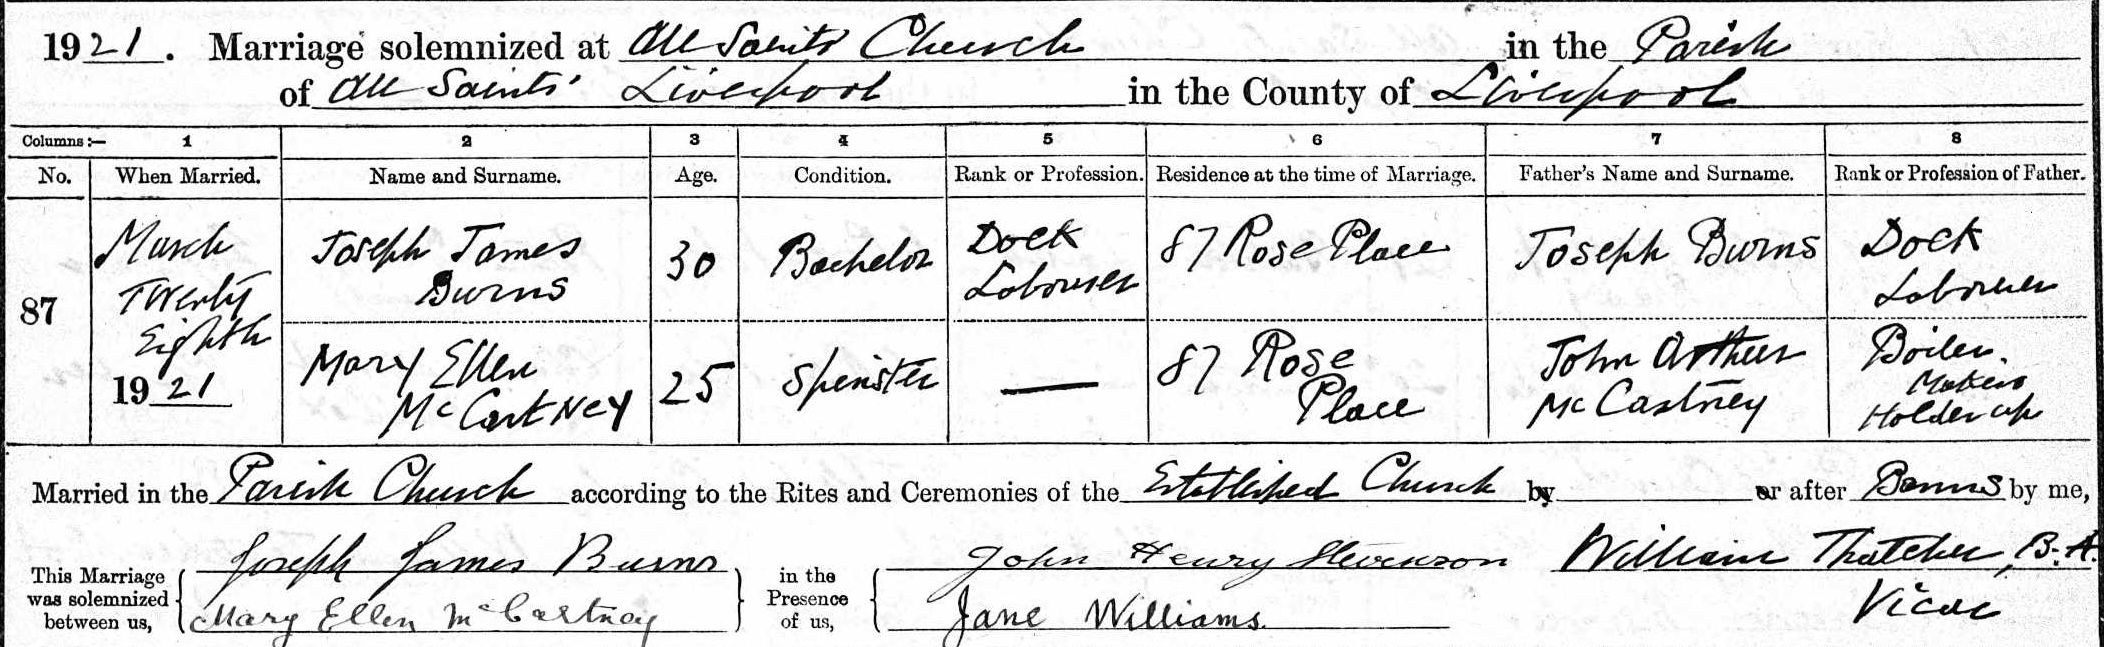 1921. Marriage solemnized at All Saints Church in the Parish
of All Saints' Liverpool in the County of Liverpool
Columns:— 1 2 3 4 5 6 7 8
No. When Married. Name and Surname. Age. Condition. Rank or Profession. Residence at the time of Marriage. Father's Name and Surname. Rank or Profession of Father.
87
March
Twenty
Eighth
1921
Joseph James
Burns
30
Bachelor
Dock
Labourer
87 Rose Place
Joseph Burns
Dock
Labourer
Mary Ellen
McCartney
25
Spinster
—
87 Rose
Place
John Arthur
McCartney
Boiler
Makers
Holder up
Married in the Parish Church according to the Rites and Ceremonies of the Established Church by or after Banns by me,
This Marriage
was solemnized
between us,
Joseph James Burns
Mary Ellen McCartney
in the
Presence
of us,
John Henry Stevenson
Jane Williams.
William Thatcher, B.A.
Vicar